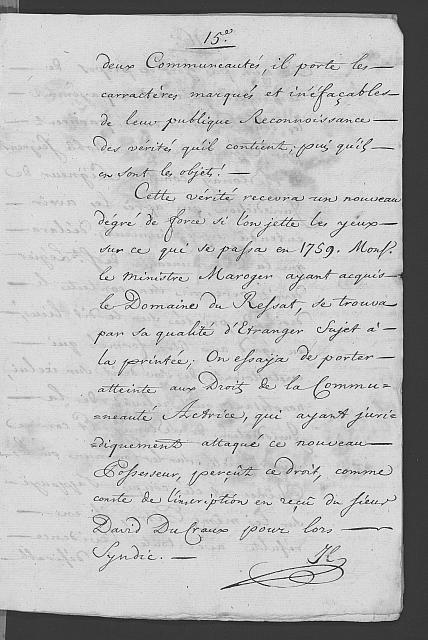 15.e
deux Communeautés, il porte les
carractéres marqués et inéfaçables
de leur publique Reconnoissance
des verités qu'il contient, puis qu'ils
en sont les objets! —
Cette vérité recevra un nouveau
dégré de force si l'on jette les yeux
sur ce qui se passa en 1759. Mons.r
le ministre Maroger ayant acquis
le Domaine du Ressat, se trouva
par sa qualité d'Etranger Sujet à
la printée; On essaÿa de porter
atteinte aux Droits de la Commu-
=neauté Actrice, qui ayant juri-
=diquement attaqué ce nouveau
Possesseur, perçût ce droit, comme
conste de l'inscription en reçu du sieur
David DuCraux pour lors
Syndic. —